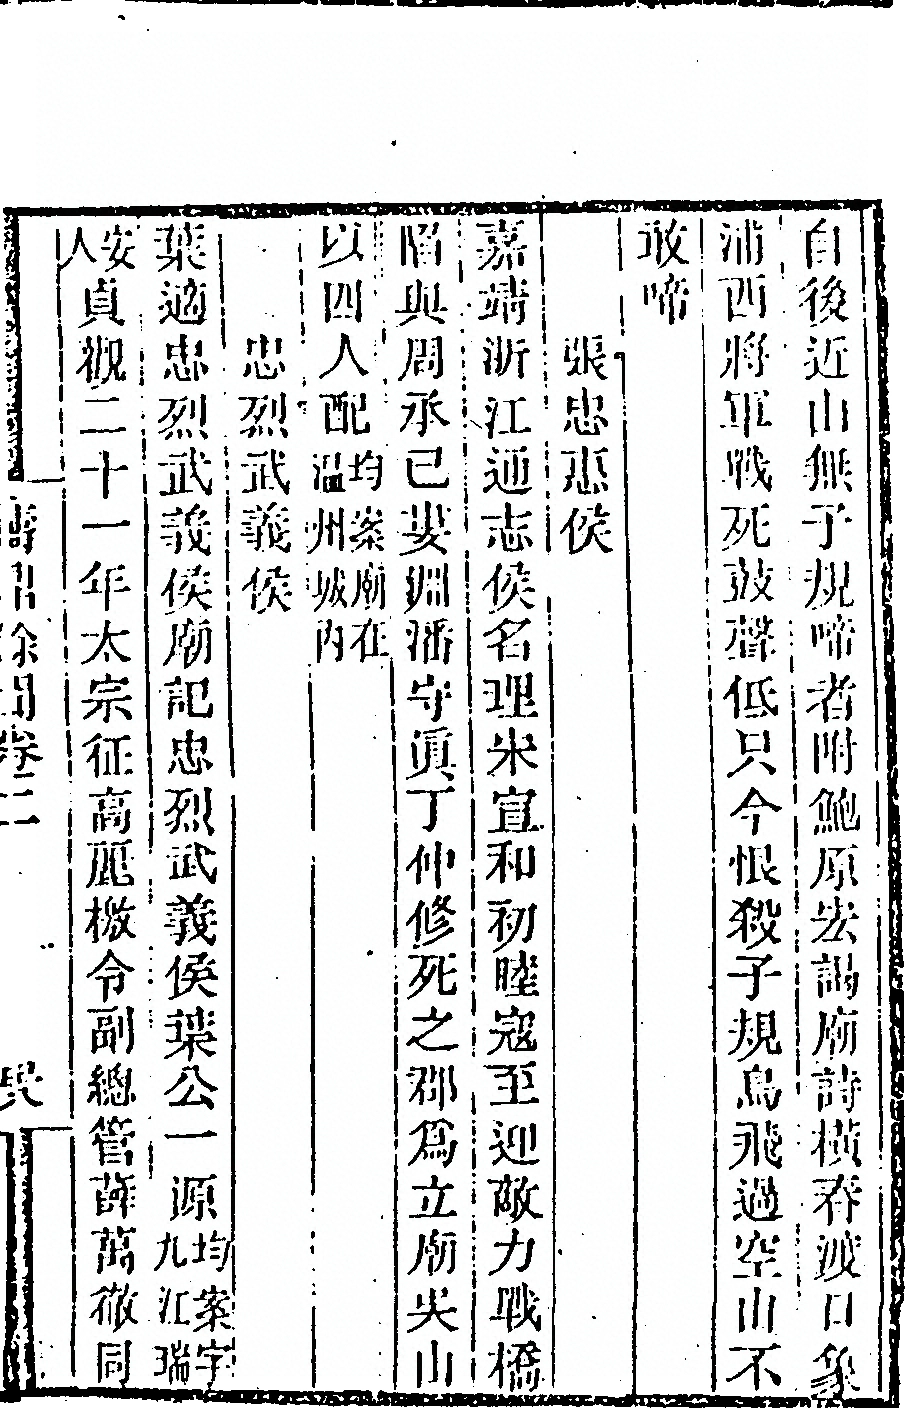 自後近山無子規啼者附鮑原宏謁廟詩橫舂渡口象
浦西將軍戰死鼓聲低只今恨殺子規鳥飛過空山不
敢啼
張忠惠侯
嘉靖浙江通志侯名理宋宣和初睦寇至迎敵力戰橋
陷與周承已婁淵潘守眞丁仲修死之郡爲立廟夹山
以四人配均案廟在溫州城內
忠烈武義侯
葉適忠烈武義侯廟記忠烈武義侯葉公一源均案字九江瑞
安人貞觀二十一年太宗征高麗檄令副總管薛萬徹同
卷二